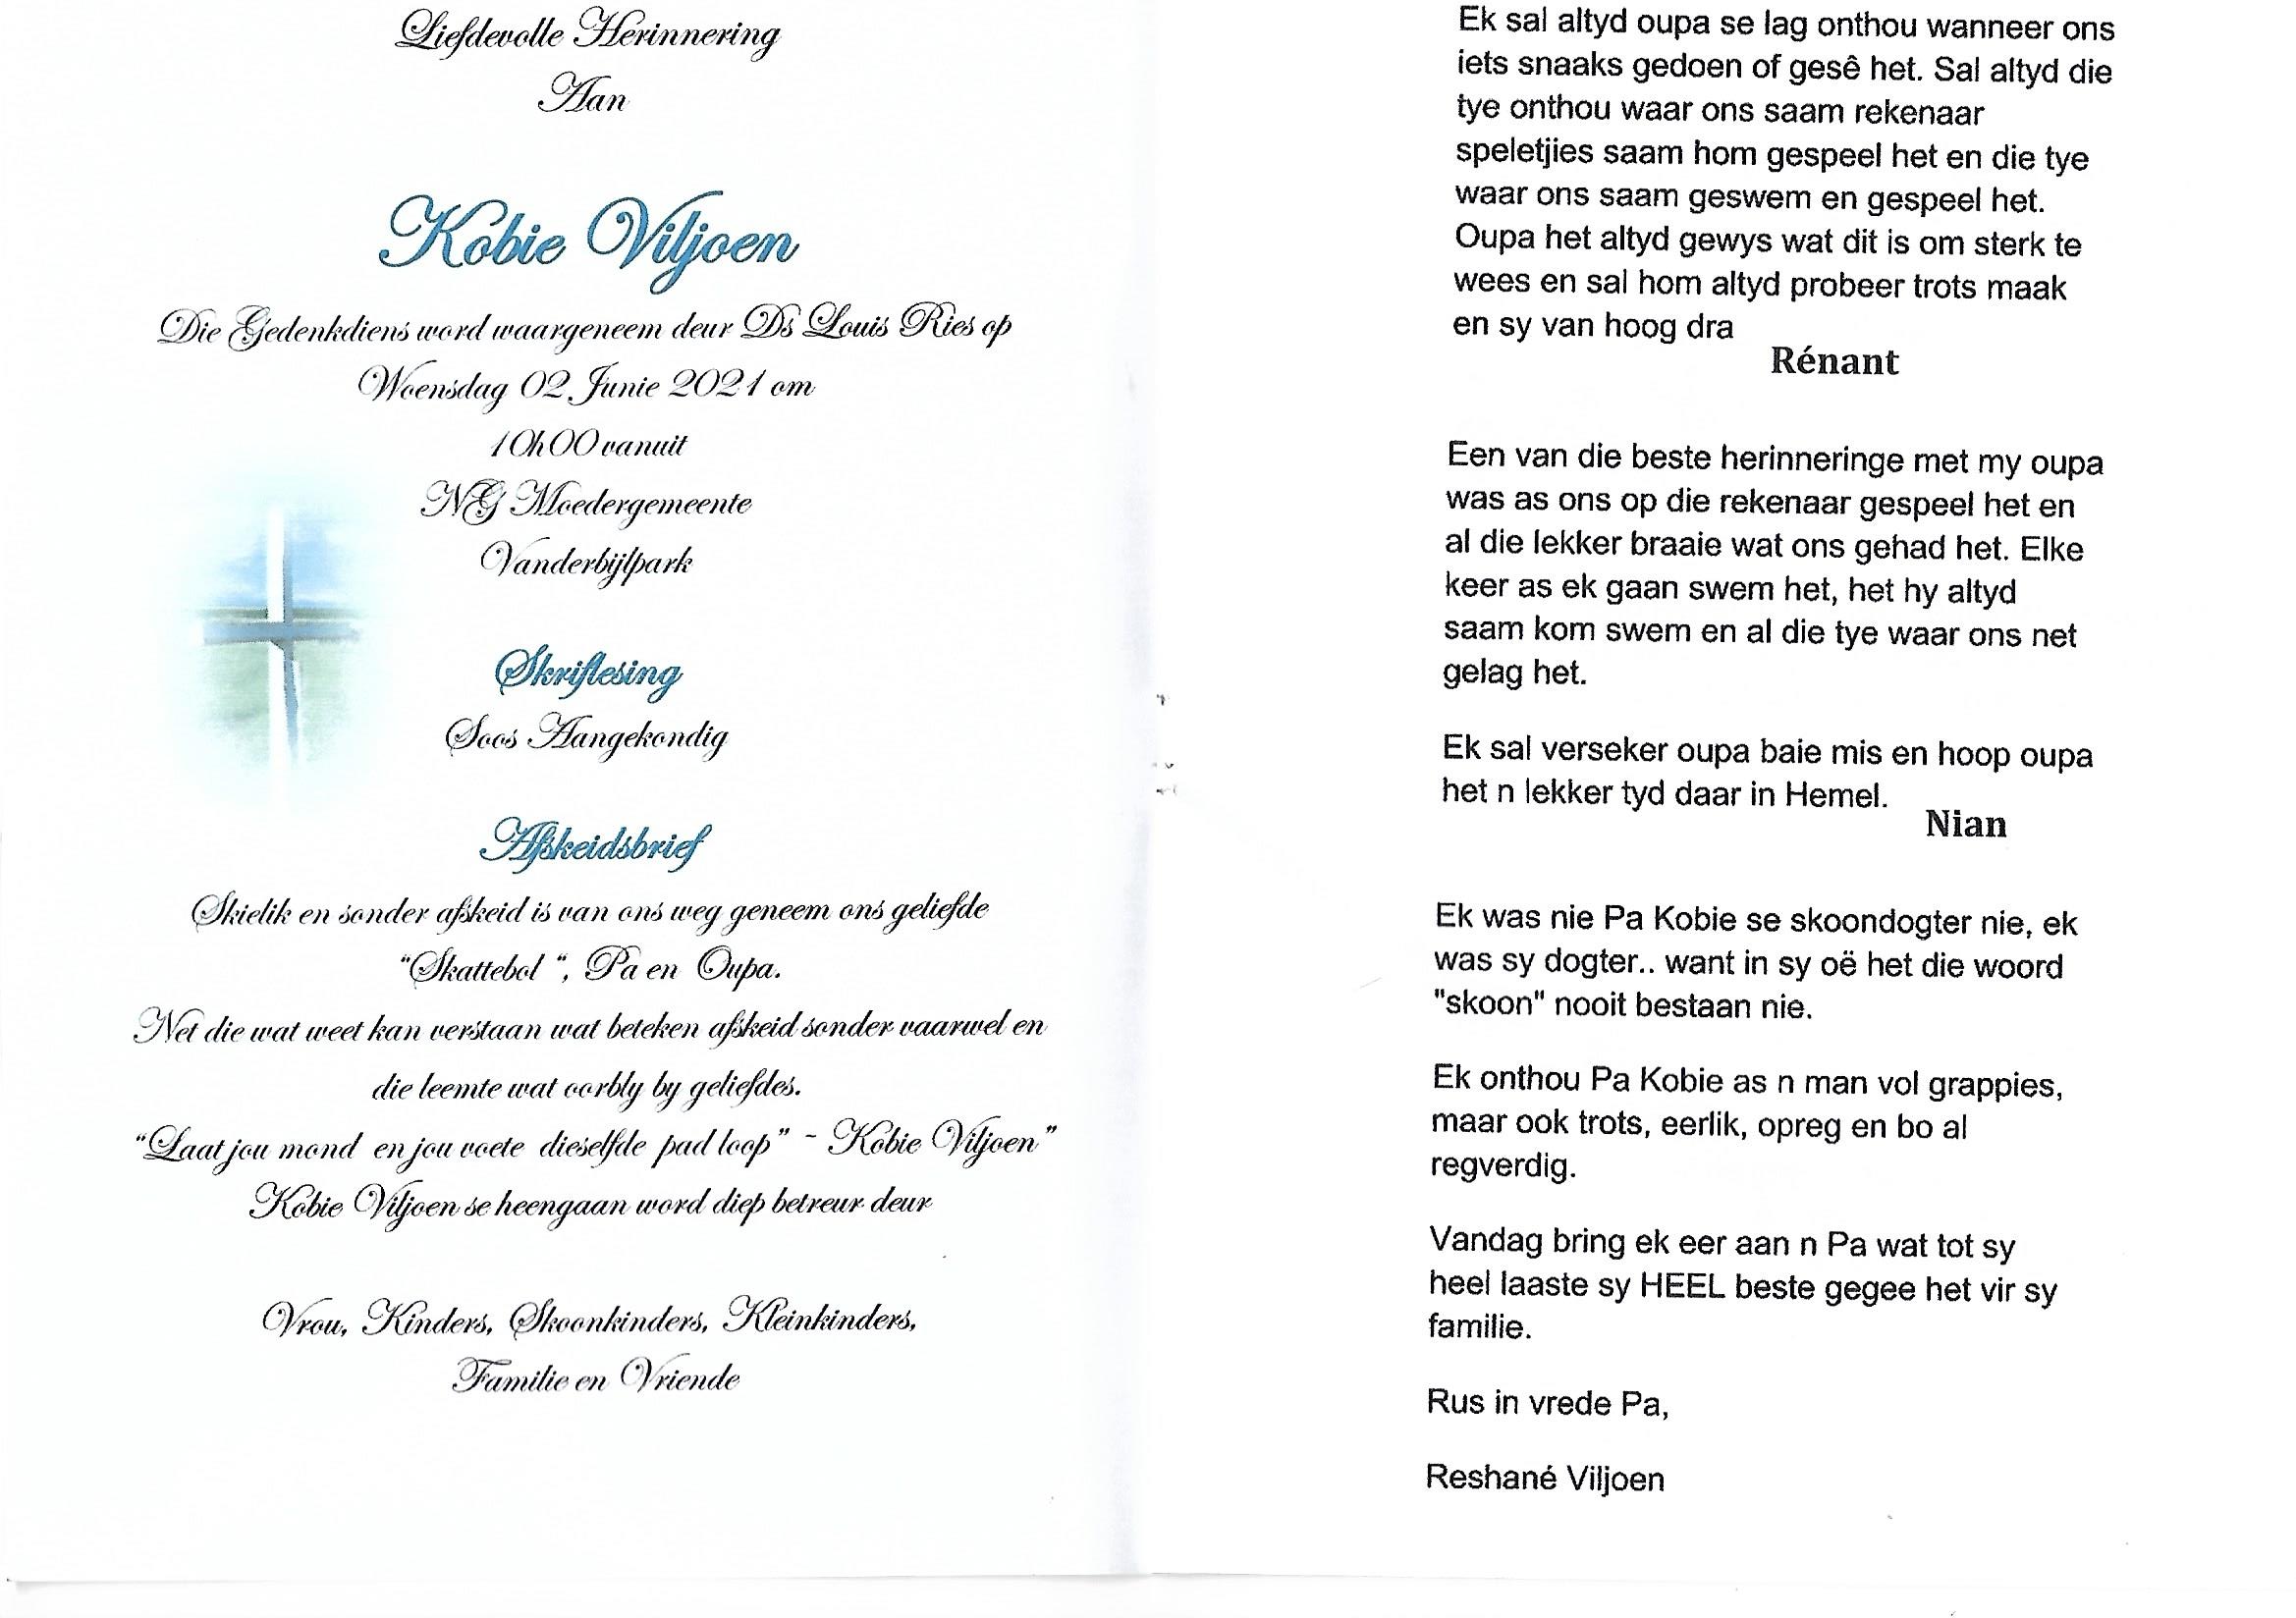 Liefdevolle Herinnering
Aan
Kobie Viljoen
Die Gedenkdiens word waargeneem deur Ds Louis Ries op
Woensdag 02 Junie 2021 om
10h00 vanuit
NG Moedergemeente
Vanderbijlpark
Skriflesing
Soos Aangekondig
Afskeidsbrief
Skielik en sonder afskeid is van ons weg geneem ons geliefde
"Skattebol ", Pa en Oupa.
Net die wat weet kan verstaan wat beteken afskeid sonder vaarwel en
die leemte wat oorbly by geliefdes.
"Laat jou mond en jou voete dieselfde pad loop" ~ Kobie Viljoen"
Kobie Viljoen se heengaan word diep betreur deur
Vrou, Kinders, Skoonkinders, Kleinkinders,
Familie en Vriende
Ek sal altyd oupa se lag onthou wanneer ons
iets snaaks gedoen of gesê het. Sal altyd die
tye onthou waar ons saam rekenaar
speletjies saam hom gespeel het en die tye
waar ons saam geswem en gespeel het.
Oupa het altyd gewys wat dit is om sterk te
wees en sal hom altyd probeer trots maak
en sy van hoog dra
Rénant
Een van die beste herinneringe met my oupa
was as ons op die rekenaar gespeel het en
al die lekker braaie wat ons gehad het. Elke
keer as ek gaan swem het, het hy altyd
saam kom swem en al die tye waar ons net
gelag het.
Ek sal verseker oupa baie mis en hoop oupa
het n lekker tyd daar in Hemel.
Nian
Ek was nie Pa Kobie se skoondogter nie, ek
was sy dogter.. want in sy oë het die woord
"skoon" nooit bestaan nie.
Ek onthou Pa Kobie as n man vol grappies,
maar ook trots, eerlik, opreg en bo al
regverdig.
Vandag bring ek eer aan n Pa wat tot sy
heel laaste sy HEEL beste gegee het vir sy
familie.
Rus in vrede Pa,
Reshané Viljoen